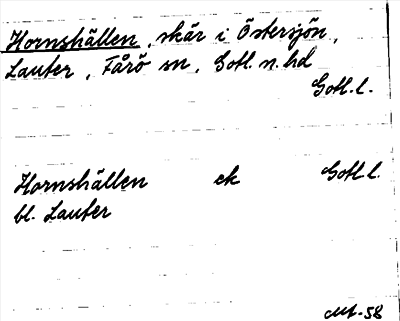 Hornshällen, skär i Östersjön,
Lauter, Fårö sn, Gotl. n. hd
Gotl. l.
Hornshällen ek Gotl. l.
bl. Lauter
Mt-58